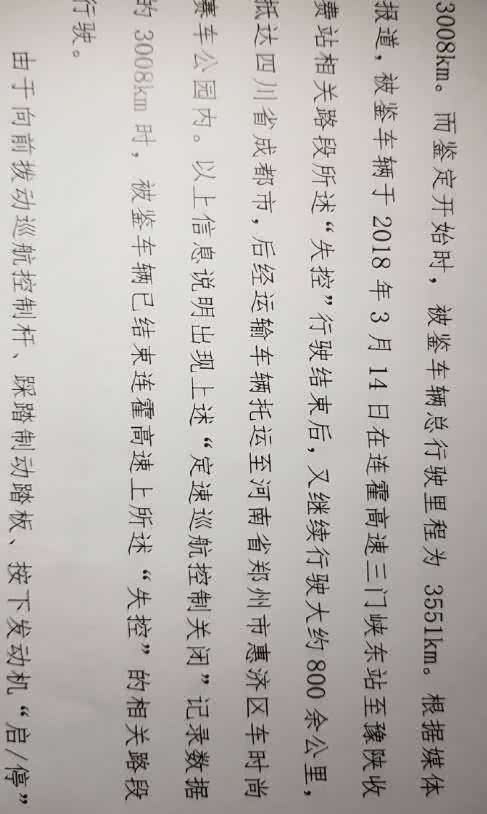 3008km。而鉴定开始时，被鉴车辆总行驶里程为 3551km。根据媒体
报道，被鉴车辆于 2018 年 3 月 14 日在连霍高速三门峡东站至豫陕收
费站相关路段所述“失控”行驶结束后，又继续行驶大约 800 余公里，
抵达四川省成都市，后经运输车辆托运至河南省郑州市惠济区车时尚
赛车公园内。以上信息说明出现上述“定速巡航控制关闭”记录数据
的 3008km 时，被鉴车辆已结束连霍高速上所述“失控”的相关路段
行驶。
由于向前拨动巡航控制杆、踩踏制动踏板、按下发动机“启/停”